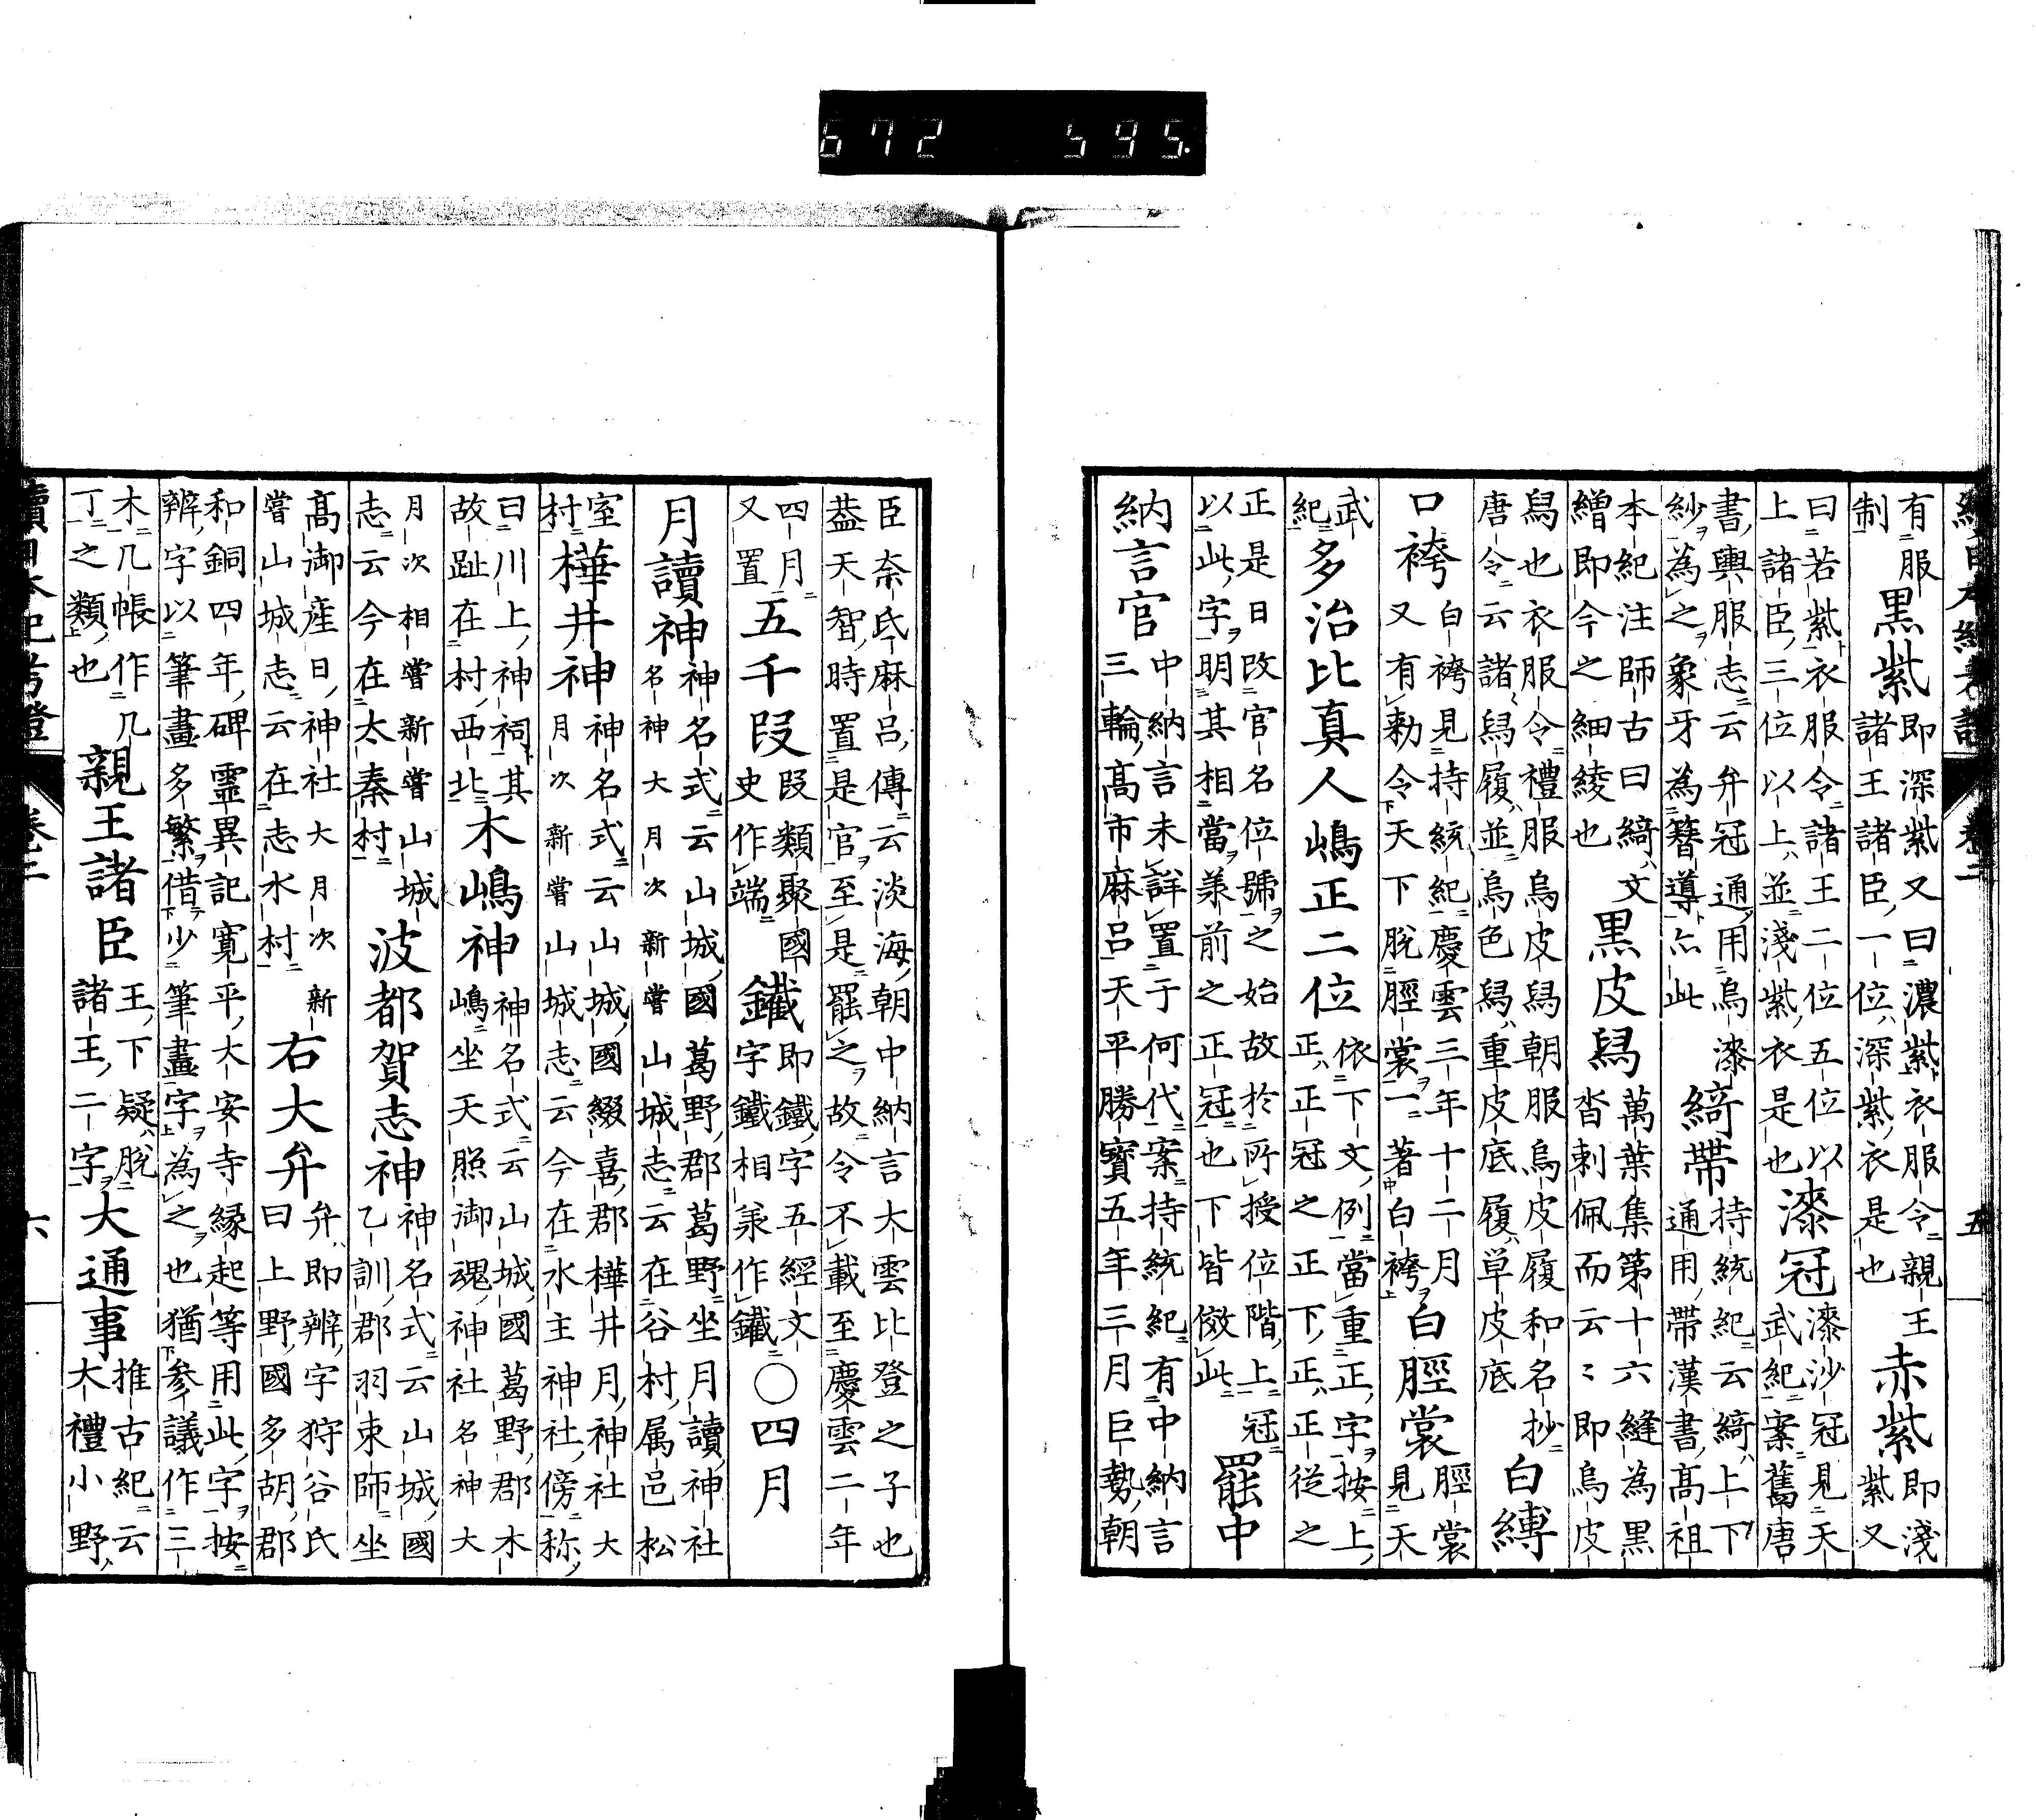 672 595.
續日本紀考證 卷二 五
有服
制
黒紫
即深紫又曰濃紫衣服令親王
諸王諸臣一位深紫衣是也
赤紫
即淺
紫又
曰若紫衣服令諸王二位五位以
上諸臣三位以上並淺紫衣是也
漆冠
漆沙冠見天
武紀案舊唐
書輿服志云弁冠通用烏漆
紗為之象牙為簪導亦此
綺帶
持統紀云綺上下
通用帶漢書高祖
本紀注師古曰綺文
繒即今之細綾也
黒皮舄
萬葉集第十六縫為黒
沓刺佩而云〻即烏皮
舄也衣服令禮服烏皮舄朝服烏皮履和名抄
唐令云諸舄履並烏色舄重皮底履單皮底
白縛
口袴
白袴見持統紀慶雲三年十二月
又有勅令天下脫脛裳一著白袴
白脛裳
脛裳
見天
武
紀
多治比真人嶋正二位
依下文例當重正字按上
正正冠之正下正正従之
正是日改官名位號之始故於所授位階上冠
以此字明其相當兼前之正冠也下皆倣此
罷中
納言官
中納言未詳置于何代案持統紀有中納言
三輪高市麻呂天平勝寳五年三月巨勢朝
臣奈氐麻呂傳云淡海朝中納言大雲比登之子也
葢天智時置是官至是罷之故令不載至慶雲二年
四月
又置
五千段
段類聚國
史作端
鐵
即鐵字五經文
字鐵相兼作鐵
○四月
月讀神
神名式云山城國葛野郡葛野坐月讀神社
名神大月次新嘗山城志云在谷村属邑松
室
村
樺井神
神名式云山城國綴喜郡樺井月神社大
月次新嘗山城志云今在水主神社傍称
曰川上神祠其
故趾在村西北
木嶋神
神名式云山城國葛野郡木
嶋坐天照御魂神社名神大
月次相嘗新嘗山城
志云今在太秦村
波都賀志神
神名式云山城國
乙訓郡羽束師坐
髙御産日神社大月次新
嘗山城志云在志水村
右大弁
弁即辨字狩谷氏
曰上野國多胡郡
和銅四年碑霊異記寛平大安寺縁起等用此字按
辨字以筆畫多繁借少筆盡字為之也猶參議作三
木几帳作几
丁之類也
親王諸臣
王下疑脫
諸王二字
大通事
推古紀云
大禮小野
續日本紀考證 卷二 六